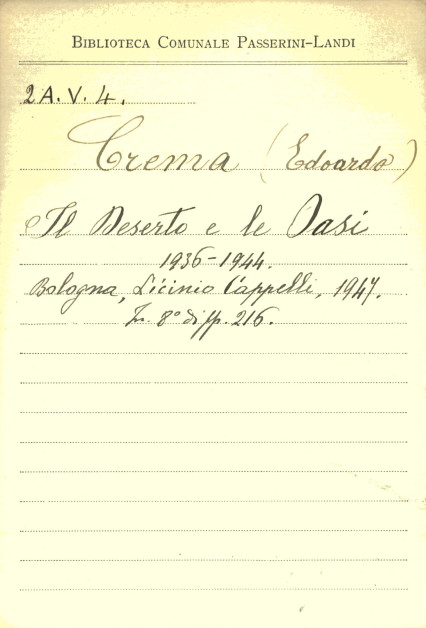 BIBLIOTECA COMUNALE PASSERINI-LANDI
2A.V.4.
Crema (Edoardo)
Il Deserto e le Oasi
1936-1944.
Bologna, Licinio Cappelli, 1947.
In 8° di pp. 216.